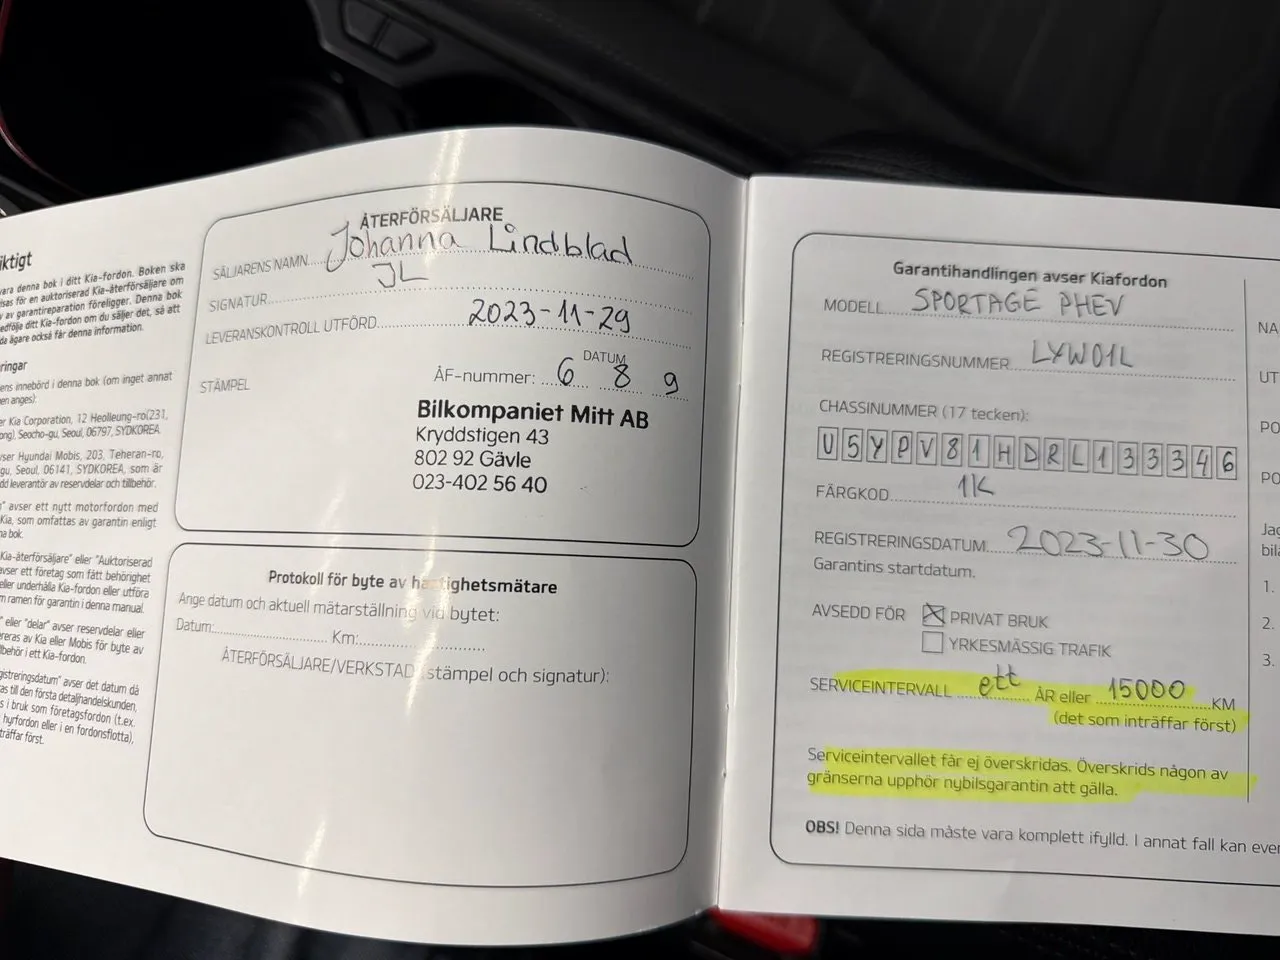 iktigt
vara denna bok i ditt Kia-fordon. Boken ska
isas för en auktoriserad Kia-återförsäljare om
v av garantireparation föreligger. Denna bok
edfölja ditt Kia-fordon om du säljer det, så att
da ägare också får denna information.
ringar
ens innebörd i denna bok (om inget annat
en anges):
er Kia Corporation, 12 Heolleung-ro(231,
ong), Seocho-gu, Seoul, 06797, SYDKOREA.
vser Hyundai Mobis, 203, Teheran-ro,
gu, Seoul, 06141, SYDKOREA, som är
dd leverantör av reservdelar och tillbehör.
n" avser ett nytt motorfordon med
Kia, som omfattas av garantin enligt
na bok.
Kia-återförsäljare" eller "Auktoriserad
avser ett företag som fått behörighet
eller underhålla Kia-fordon eller utföra
m ramen för garantin i denna manual.
" eller "delar" avser reservdelar eller
reras av Kia eller Mobis för byte av
lbehör i ett Kia-fordon.
gistreringsdatum" avser det datum då
as till den första detaljhandelskunden,
s i bruk som företagsfordon (t.ex.
hyrfordon eller i en fordonsflotta),
träffar först.
ÅTERFÖRSÄLJARE
SÄLJARENS NAMN Johanna Lindblad
SIGNATUR JL
LEVERANSKONTROLL UTFÖRD 2023-11-29
DATUM
STÄMPEL
ÅF-nummer: 6 8 9
Bilkompaniet Mitt AB
Kryddstigen 43
802 92 Gävle
023-402 56 40
Protokoll för byte av hastighetsmätare
Ange datum och aktuell mätarställning vid bytet:
Datum: Km:
ÅTERFÖRSÄLJARE/VERKSTAD (stämpel och signatur):
Garantihandlingen avser Kiafordon
MODELL SPORTAGE PHEV
REGISTRERINGSNUMMER LYW01L
CHASSINUMMER (17 tecken):
U5YPV81HDRL133346
FÄRGKOD 1K
REGISTRERINGSDATUM 2023-11-30
Garantins startdatum.
AVSEDD FÖR PRIVAT BRUK
YRKESMÄSSIG TRAFIK
SERVICEINTERVALL ett ÅR eller 15000 KM
(det som inträffar först)
Serviceintervallet får ej överskridas. Överskrids någon av
gränserna upphör nybilsgarantin att gälla.
OBS! Denna sida måste vara komplett ifylld. I annat fall kan even
NA
UT
PO
PO
Jag
bila
1.
2.
3.